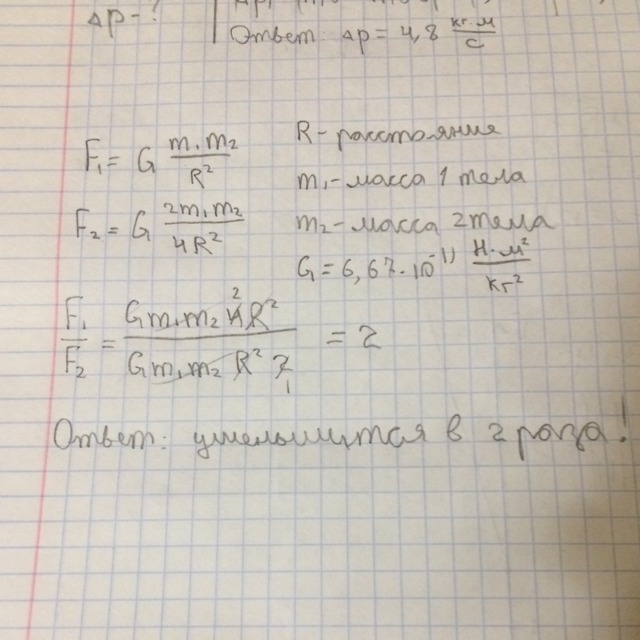 Δp-?
Ответ: Δp = 4,8 кг·м/с
F₁ = G m₁m₂/R²
R - расстояние
m₁ - масса 1 тела
F₂ = G 2m₁m₂/4R²
m₂ - масса 2 тела
G = 6,67·10⁻¹¹ Н·м²/кг²
F₁/F₂ = Gm₁m₂ 4 2 R²/Gm₁m₂ R² 2 1 = 2
Ответ: уменьшится в 2 раза!